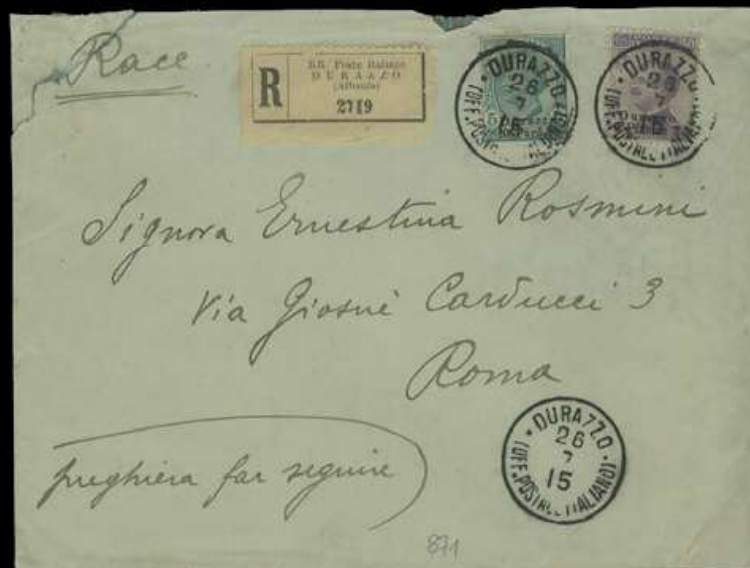 Race
R
RR. Poste Italiane
DURAZZO
(Albania)
2719
DURAZZO
26
7
15
(UFF. POSTALE ITALIANO)
DURAZZO
26
7
15
(UFF. POSTALE ITALIANO)
Signora Ernestina Rosmini
Via Giosuè Carducci 3
Roma
preghiera far seguire
DURAZZO
26
7
15
(UFF. POSTALE ITALIANO)
871